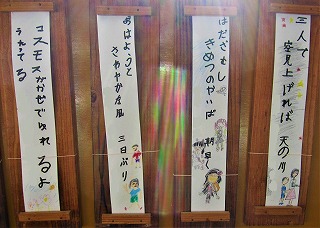 三人で
空見上げれば 天の川
はだざむし
きめつのやいば
おはようと
さわやかな風 三日ぶり
コスモスがかぜでゆれるよ
うたってる